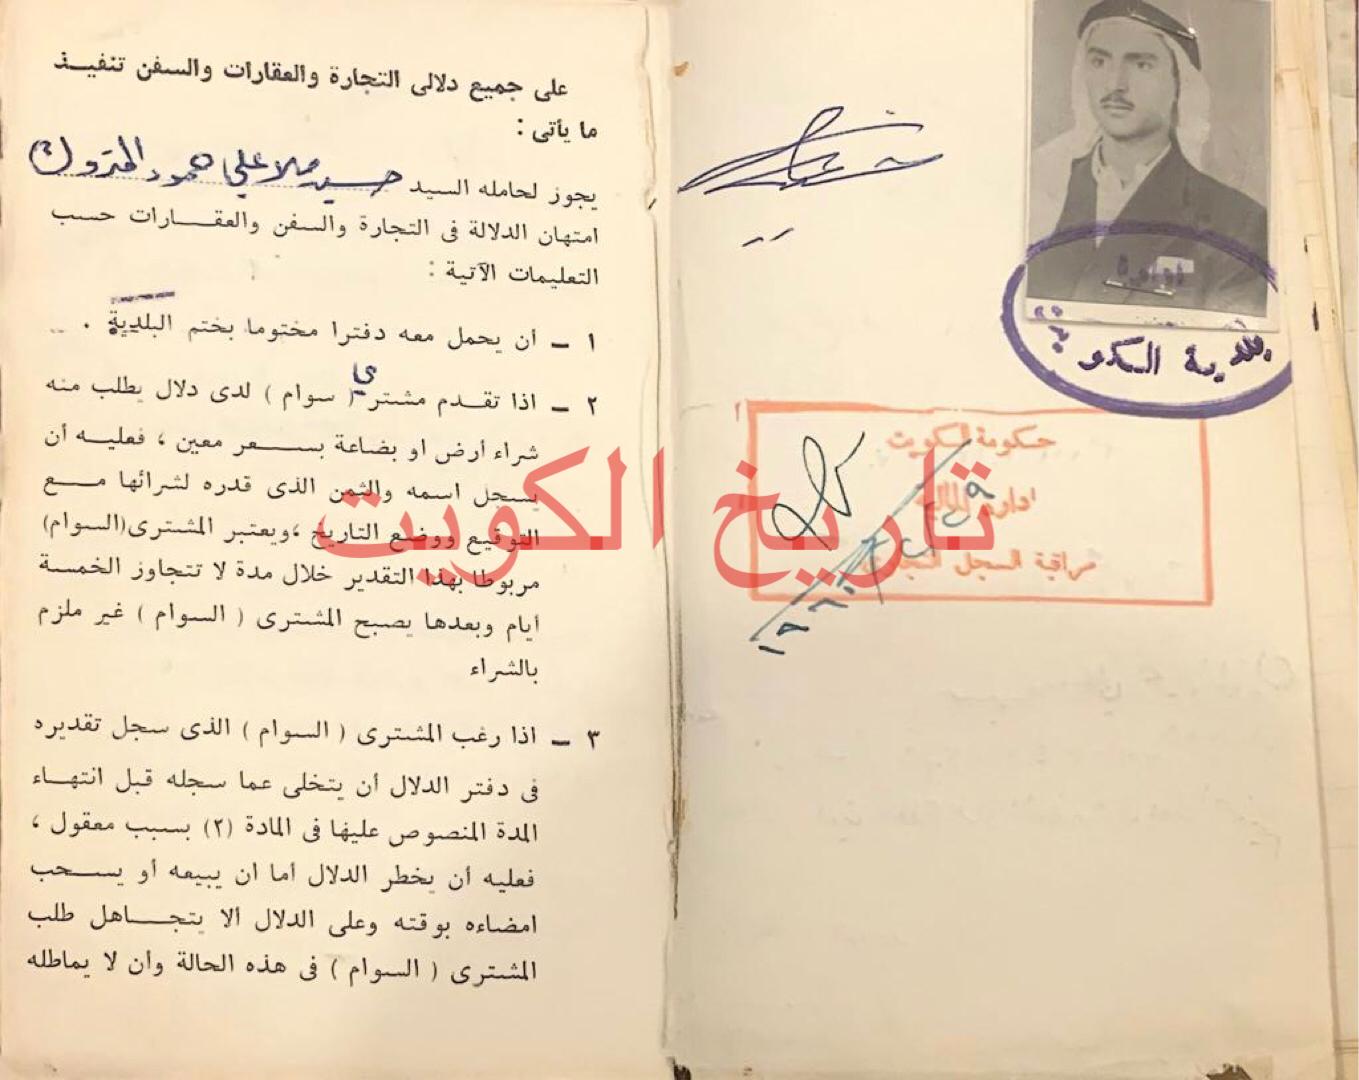 على جميع دلالى التجارة والعقارات والسفن تنفيذ
ما يأتى :
يجوز لحامله السيد حسين ملا علي حمود المتروك
امتهان الدلالة فى التجارة والسفن والعقارات حسب
التعليمات الآتية :
١ – أن يحمل معه دفترا مختوما بختم البلدية .
٢ – اذا تقدم مشتري ( سوام ) لدى دلال يطلب منه
شراء أرض او بضاعة بسعر معين ، فعليه أن
يسجل اسمه والثمن الذى قدره لشرائها مع
التوقيع ووضع التاريخ ،ويعتبر المشترى(السوام)
مربوطا بهذا التقدير خلال مدة لا تتجاوز الخمسة
أيام وبعدها يصبح المشترى ( السوام ) غير ملزم
بالشراء
٣ – اذا رغب المشترى ( السوام ) الذى سجل تقديره
فى دفتر الدلال أن يتخلى عما سجله قبل انتهاء
المدة المنصوص عليها فى المادة (٢) بسبب معقول ،
فعليه أن يخطر الدلال أما ان يبيعه أو يسحب
امضاءه بوقته وعلى الدلال ألا يتجاهل طلب
المشترى ( السوام ) فى هذه الحالة وان لا يماطله
ادارة
بلدية الكويت
حكومة الكويت
ادارة المالية
مراقبة السجل التجارى
١٩٦٠
تاريخ الكويت